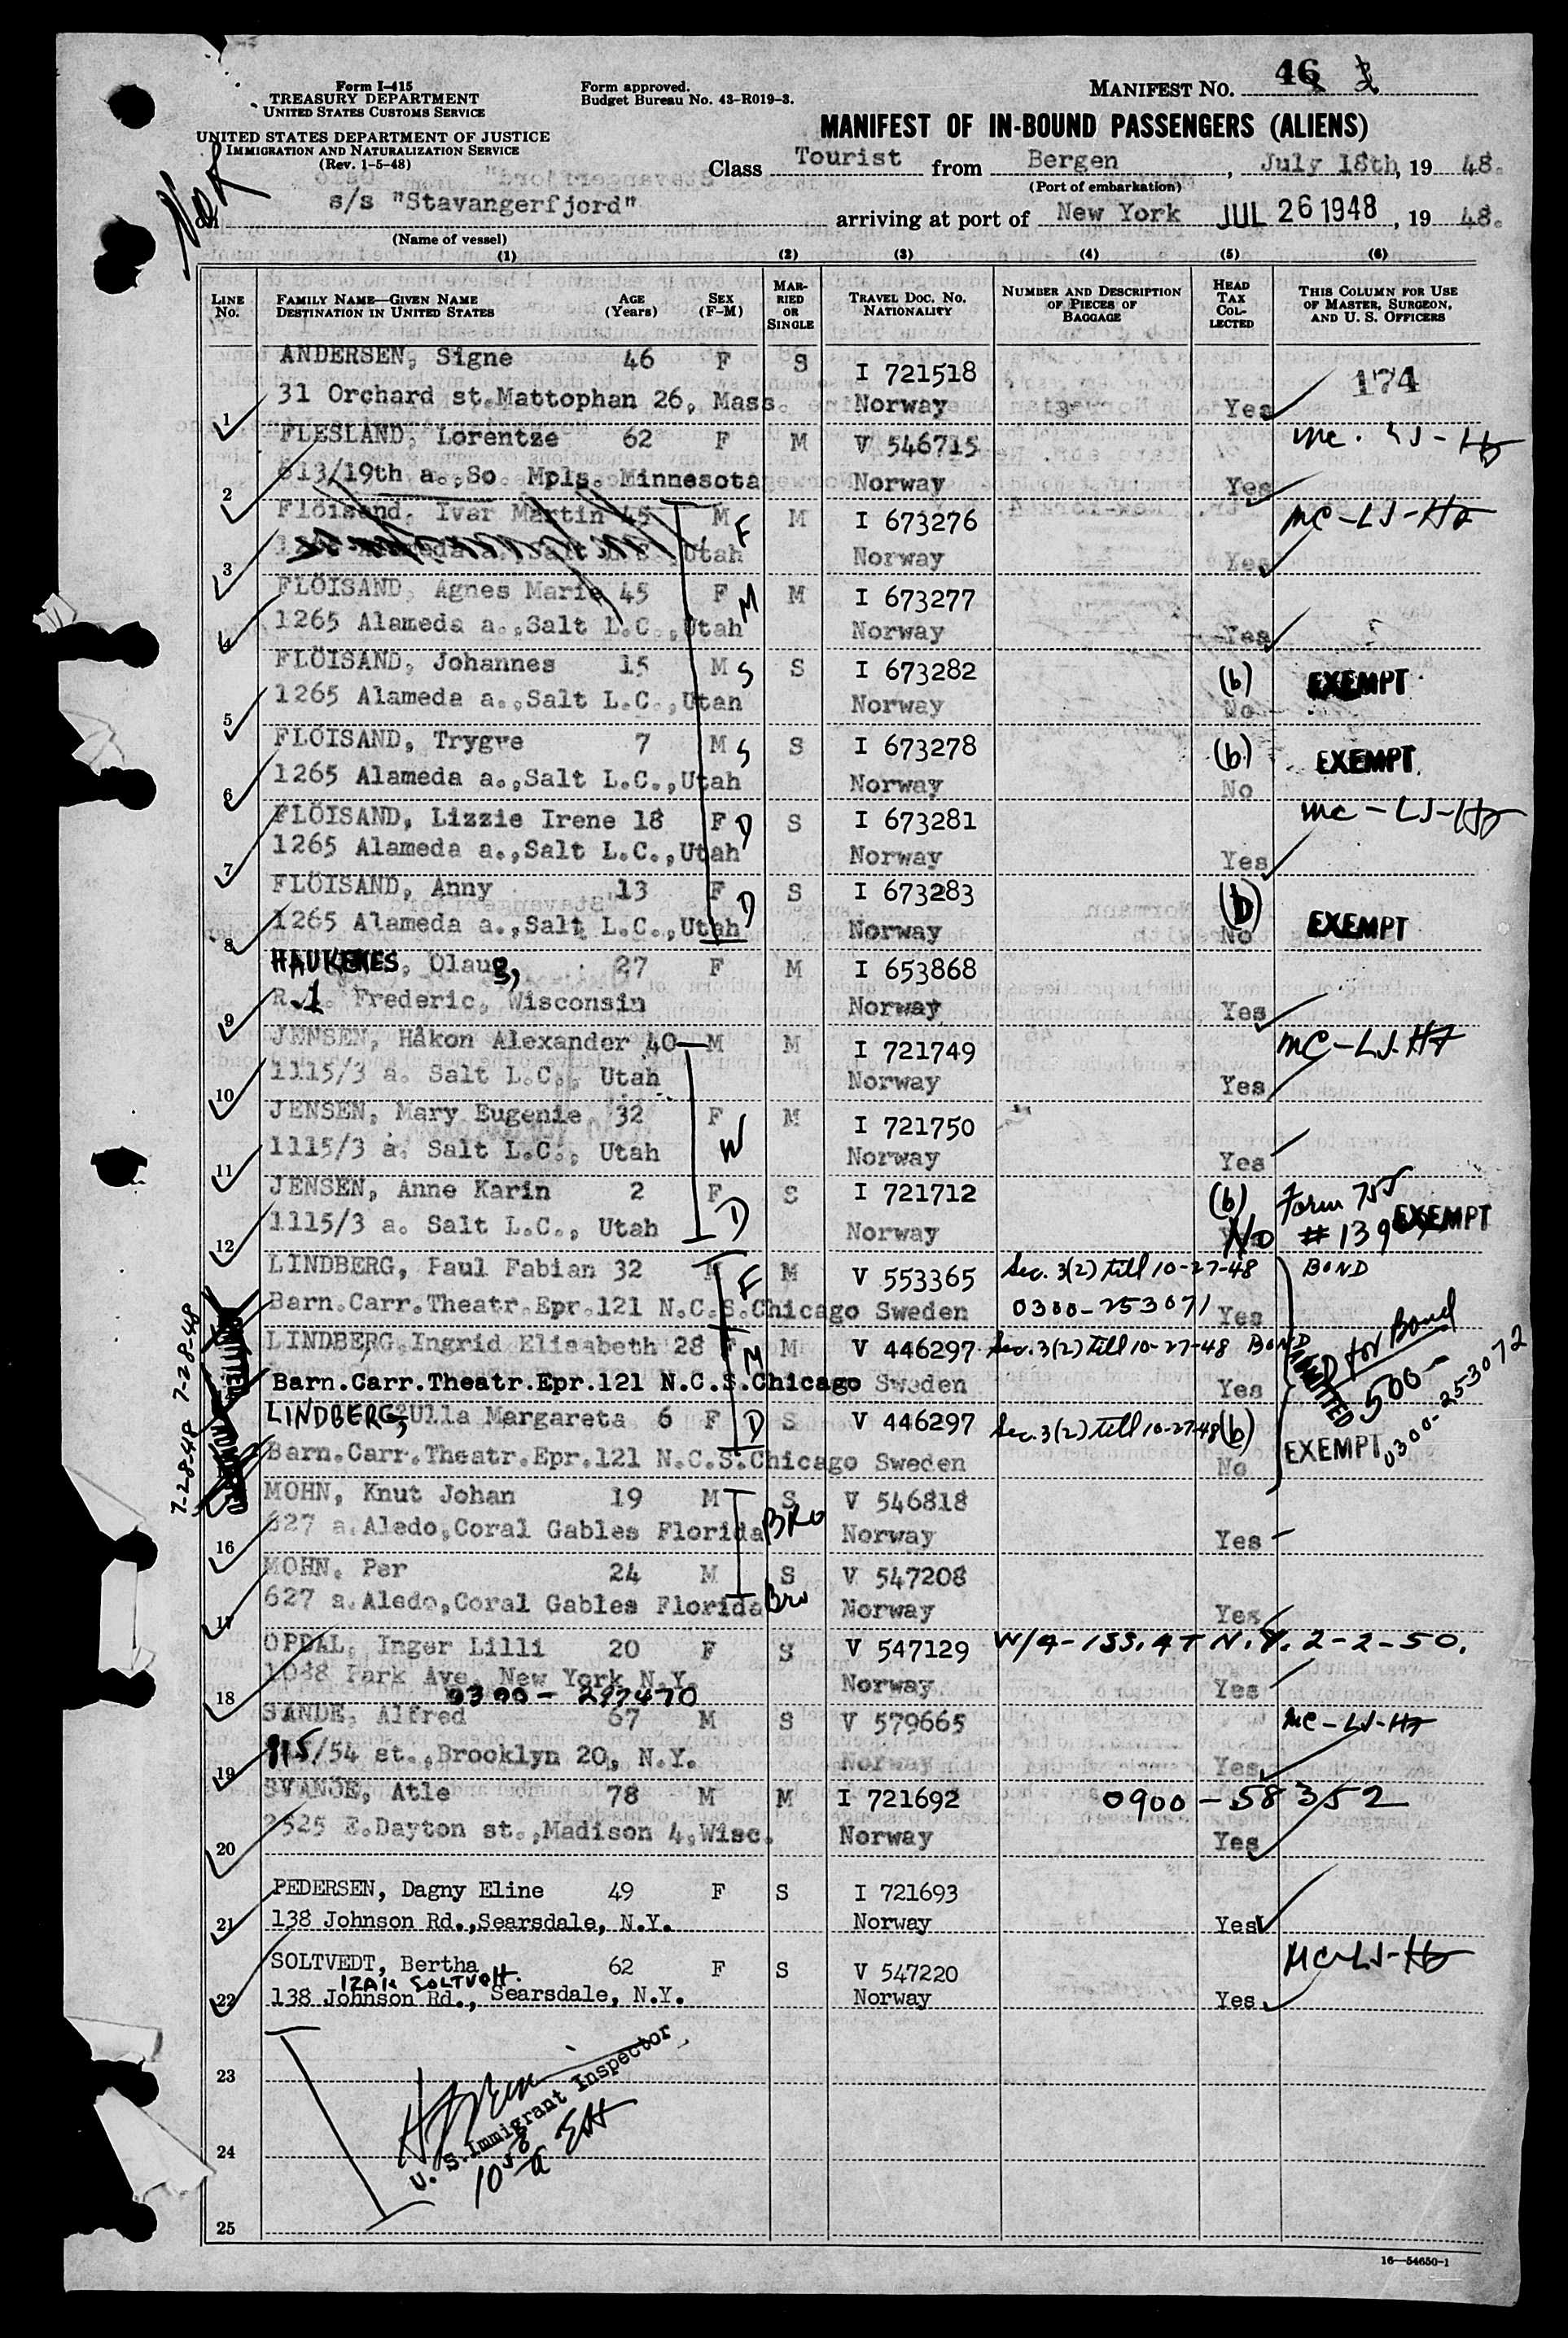 Form I-415
TREASURY DEPARTMENT
UNITED STATES CUSTOMS SERVICE
Form approved.
Budget Bureau No. 43-R019-3.
MANIFEST NO. 46
UNITED STATES DEPARTMENT OF JUSTICE
IMMIGRATION AND NATURALIZATION SERVICE
(Rev. 1-5-48)
MANIFEST OF IN-BOUND PASSENGERS (ALIENS)
Class Tourist from Bergen, July 18th, 19 48.
(Port of embarkation)
s/s "Stavangerfjord" arriving at port of New York JUL 26 1948, 19 48.
(Name of vessel)
(1) (2) (3) (4) (5) (6)
LINE No. FAMILY NAME—GIVEN NAME DESTINATION IN UNITED STATES AGE (Years) SEX (F-M) MARRIED OR SINGLE TRAVEL DOC. NO. NATIONALITY NUMBER AND DESCRIPTION OF PIECES OF BAGGAGE HEAD TAX COLLECTED THIS COLUMN FOR USE OF MASTER, SURGEON, AND U. S. OFFICERS
ANDERSEN, Signe 46 F S I 721518 174
1 31 Orchard st.Mattophan 26, Mass. Norway Yes
FLESLAND, Lorentze 62 F M V 546715 mc-LJ-
2 613/19th a.,So. Mpls. Minnesota Norway Yes
Flöisand, Ivar Martin 45 M F M I 673276 MC-LJ-
3 Utah Norway Yes
FLÖISAND, Agnes Marie 45 F M M I 673277
4 1265 Alameda a.,Salt L.C.,Utah Norway Yes
FLÖISAND, Johannes 15 M S S I 673282 (b) EXEMPT
5 1265 Alameda a.,Salt L.C.,Utah Norway No
FLÖISAND, Trygve 7 M S S I 673278 (b) EXEMPT
6 1265 Alameda a.,Salt L.C.,Utah Norway No
FLÖISAND, Lizzie Irene 18 F D S I 673281 mc-LJ-
7 1265 Alameda a.,Salt L.C.,Utah Norway Yes
FLÖISAND, Anny 13 F D S I 673283 (b) EXEMPT
8 1265 Alameda a.,Salt L.C.,Utah Norway No
HAUKENES, Olaug, 27 F M I 653868
9 R.1. Frederic, Wisconsin Norway Yes
JENSEN, Håkon Alexander 40 M M I 721749 MC-LJ-
10 1115/3 a. Salt L.C., Utah Norway Yes
JENSEN, Mary Eugenie 32 F W M I 721750
11 1115/3 a. Salt L.C., Utah Norway Yes
JENSEN, Anne Karin 2 F D S I 721712 (b) Form 755
12 1115/3 a. Salt L.C., Utah Norway No # 139 EXEMPT
LINDBERG, Paul Fabian 32 M F M V 553365 Sec. 3(2) till 10-27-48 BOND
Barn.Carr.Theatr.Epr.121 N.C.S.Chicago Sweden 0300-253071 Yes
LINDBERG,Ingrid Elisabeth 28 F M M V 446297 Sec. 3(2) till 10-27-48 BOND
Barn.Carr.Theatr.Epr.121 N.C.S.Chicago Sweden Yes
LINDBERG, Ulla Margareta 6 F D S V 446297 Sec. 3(2) till 10-27-48 (b) EXEMPT
Barn.Carr.Theatr.Epr.121 N.C.S.Chicago Sweden No
ADMITTED for Bond
500-
0300-253072
ADMITTED 7-28-48
ADMITTED 7-28-48
MOHN, Knut Johan 19 M S V 546818
16 627 a.Aledo,Coral Gables Florida BRO Norway Yes
MOHN, Per 24 M S V 547208
17 627 a.Aledo,Coral Gables Florida Bro Norway Yes
OPDAL, Inger Lilli 20 F S V 547129 W/A-ISS. AT N.Y. 2-2-50.
18 1088 Park Ave. New York N.Y. Norway Yes
0300-297470
SANDE, Alfred 67 M S V 579665 MC-LJ-
19 815/54 st.,Brooklyn 20, N.Y. Norway Yes
SVANÖE, Atle 78 M M I 721692 0900-58352
20 2525 E.Dayton st.,Madison 4,Wisc. Norway Yes
PEDERSEN, Dagny Eline 49 F S I 721693
21 138 Johnson Rd.,Searsdale, N.Y. Norway Yes
SOLTVEDT, Bertha 62 F S V 547220 MC-LJ-
22 138 Johnson Rd., Searsdale, N.Y. Norway Yes
23
U. S. Immigrant Inspector
24
25
16—54650-1